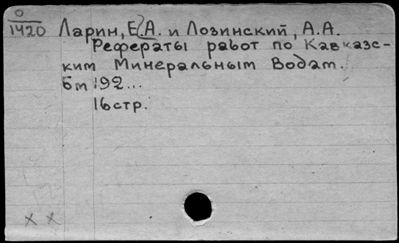 О
1420
Ларин, Е.А. и Лозинский, А.А.
Рефераты работ по Кавказс-
ким Минеральным Водам.
Бм 192...
16стр.
х х